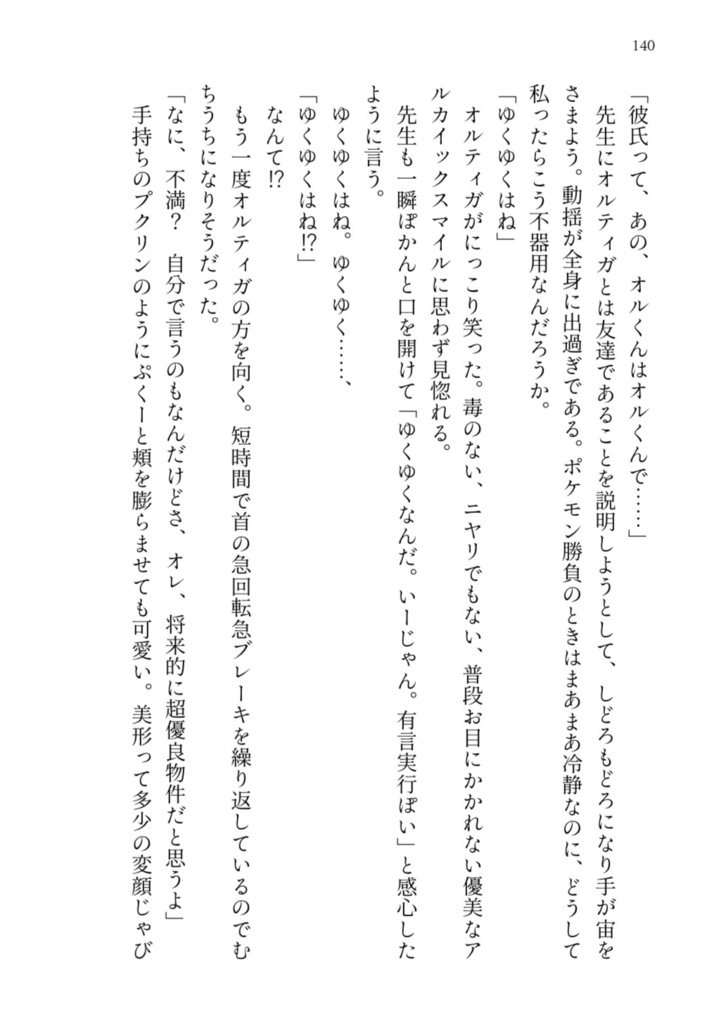 140
「彼氏って、あの、オルくんはオルくんで……」
先生にオルティガとは友達であることを説明しようとして、しどろもどろになり手が宙を
さまよう。動揺が全身に出過ぎである。ポケモン勝負のときはまあまあ冷静なのに、どうして
私ったらこう不器用なんだろうか。
「ゆくゆくはね」
オルティガがにっこり笑った。毒のない、ニヤリでもない、普段お目にかかれない優美なア
ルカイックスマイルに思わず見惚れる。
先生も一瞬ぽかんと口を開けて「ゆくゆくなんだ。いーじゃん。有言実行ぽい」と感心した
ように言う。
ゆくゆくはね。ゆくゆく……、
「ゆくゆくはね⁉」
なんて⁉
もう一度オルティガの方を向く。短時間で首の急回転急ブレーキを繰り返しているのでむ
ちうちになりそうだった。
「なに、不満？　自分で言うのもなんだけどさ、オレ、将来的に超優良物件だと思うよ」
手持ちのプクリンのようにぷくーと頬を膨らませても可愛い。美形って多少の変顔じゃび